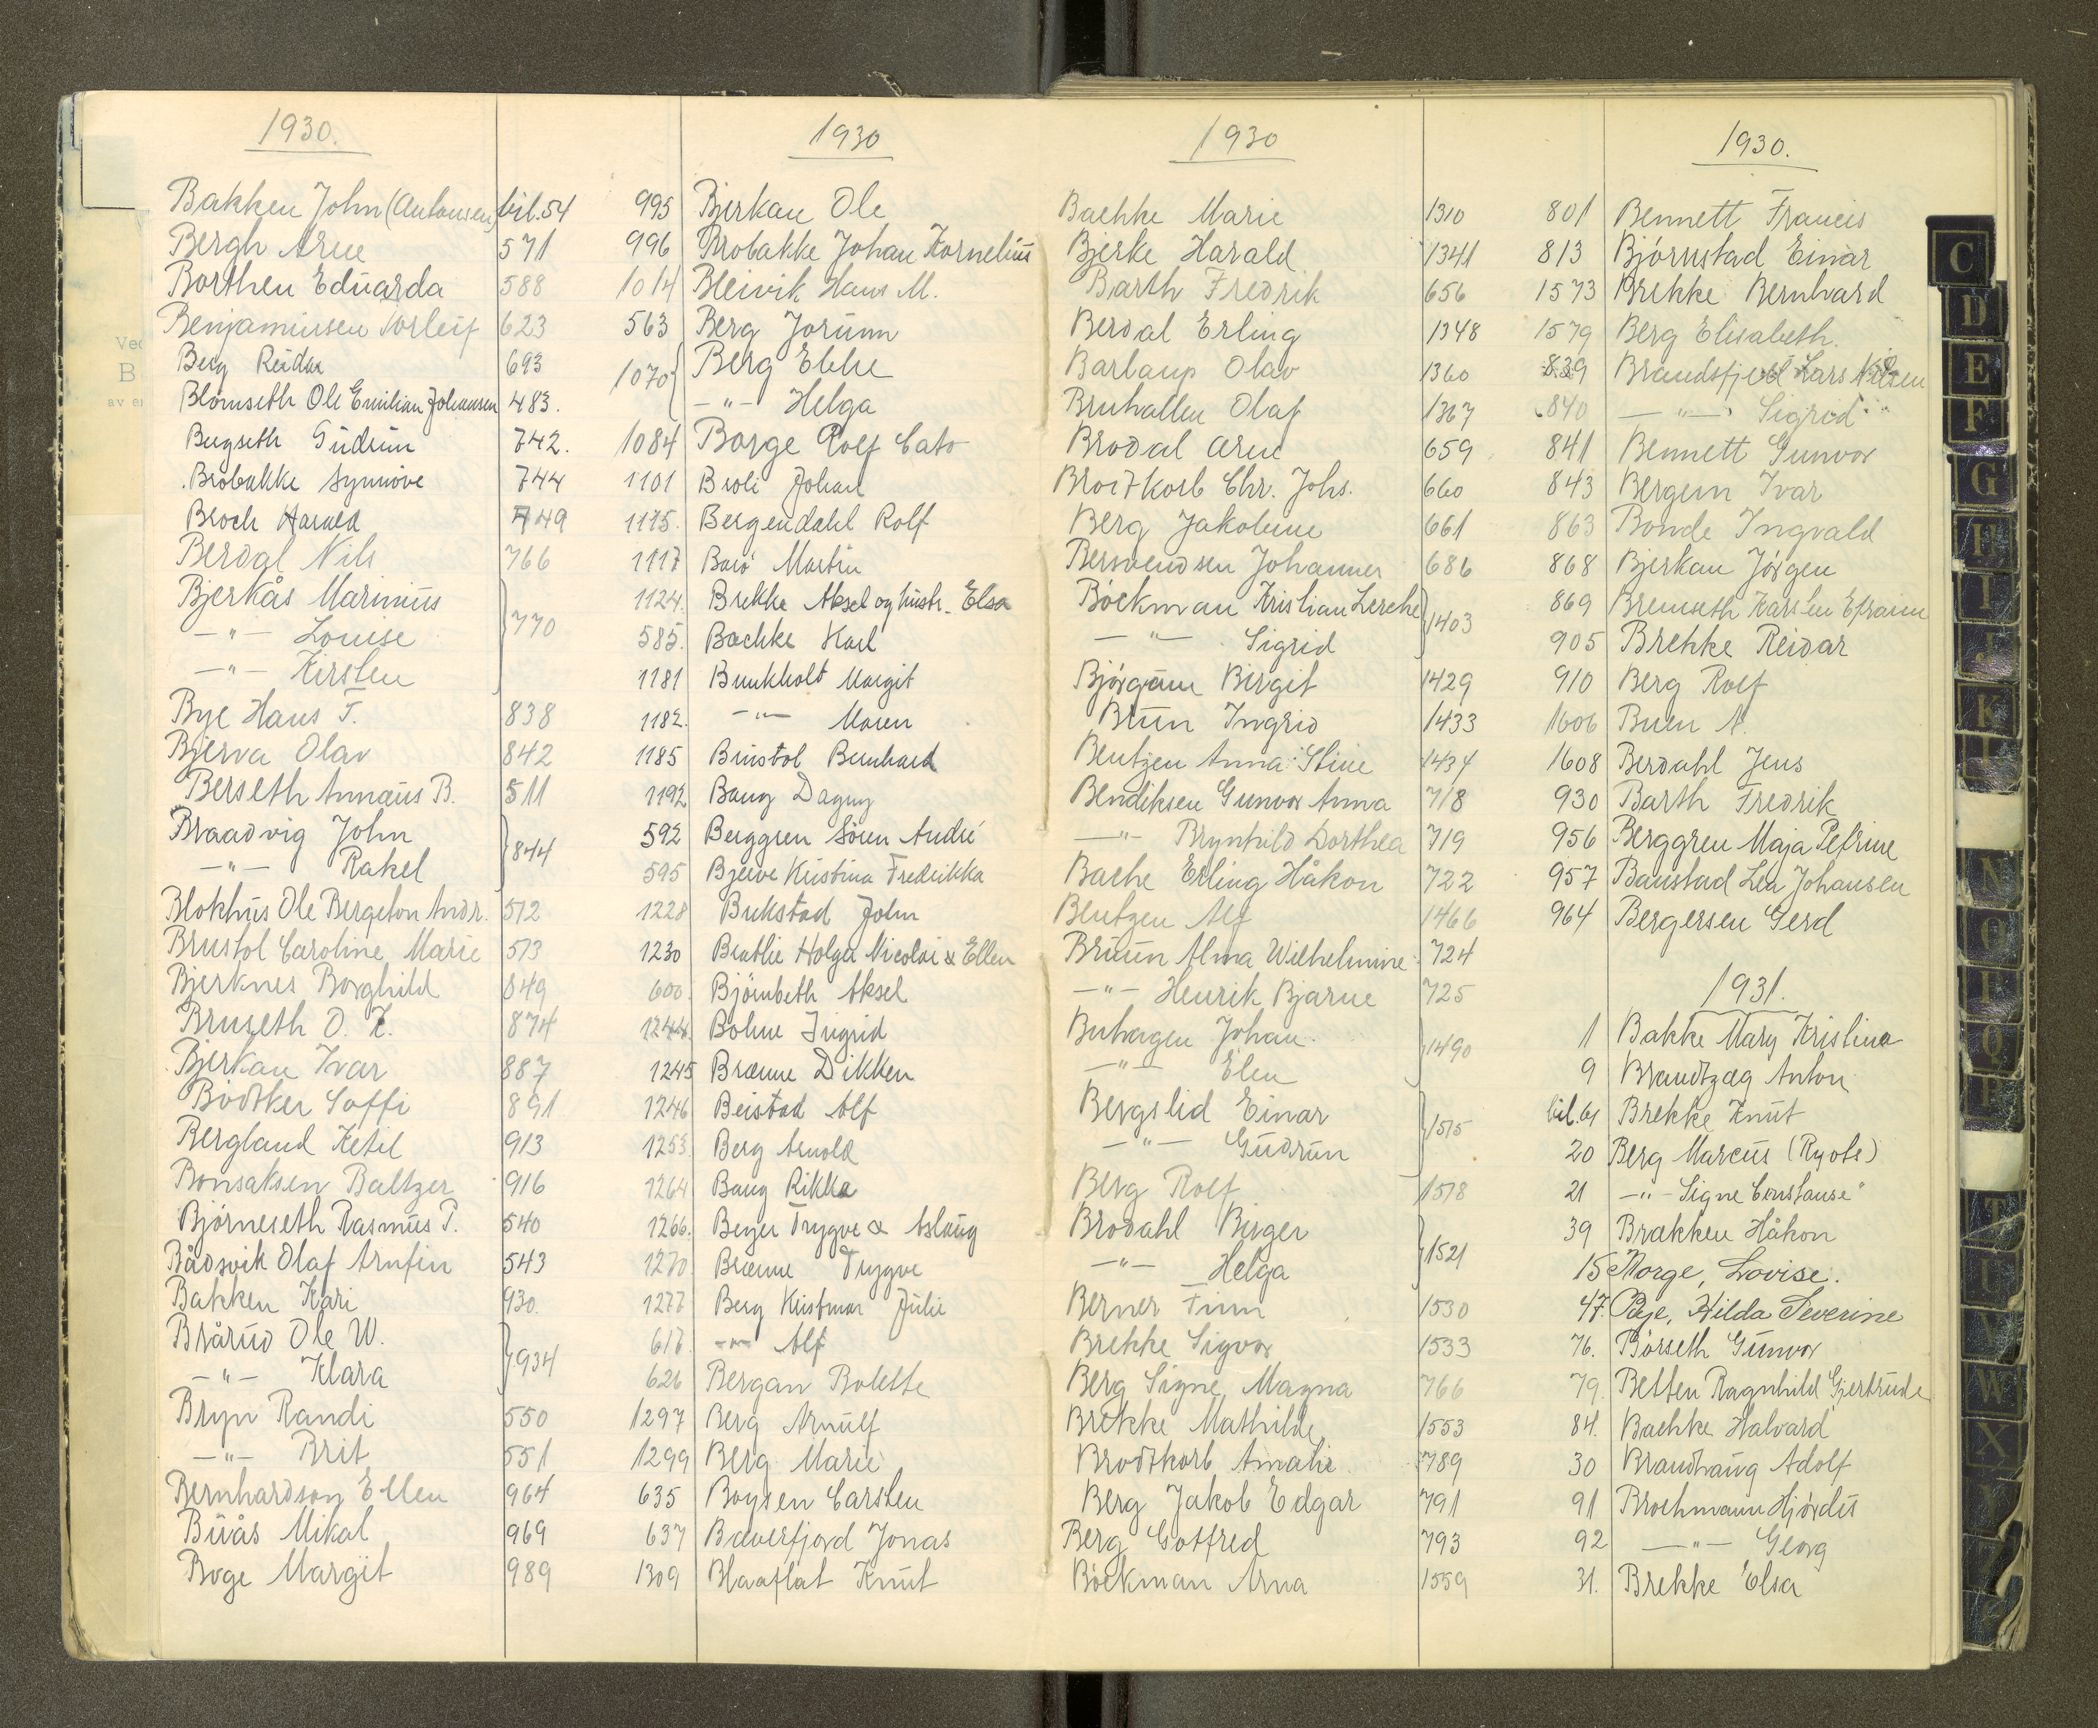 1930.
Bakken John (Antonsen) bil. 54
Bergh Arne 571
Borthen Eduarda 588
Benjaminsen Torleif 623
Berg Reidar 693
Blomseth Ole Emilian Johansen 483.
Bergseth Gudrun 742.
Brobakke Synnöve 744
Broch Harald 749
Berdal Nils 766
Bjerkås Marinius
—"— Louise 770
—"— Kirsten
Bye Hans T. 838
Bjerva Olav 842
Berseth Annæus B. 511
Braadvig John
—"— Rakel 844
Blokhus Ole Bergeton Andr. 512
Brustol Caroline Marie 513
Bjerknes Borghild 849
Bruseth O. K. 874
Bjerkan Ivar 887
Bödtker Soffi 891
Bergland Ketil 913
Bonsaksen Baltzer 916
Björneseth Rasmus P. 540
Bådsvik Olaf Arnfin 543
Bakken Kari 930.
Brårud Ole W.
—"— Klara 934
Bryn Randi 550
—"— Brit 551
Bernhardson Ellen 964
Buås Mikal 969
Boge Margit 989
1930
995 Bjerkan Ole
996 Brobakke Johan Kornelius
1014 Bleivik Hans M.
563 Berg Jorunn
1070 Berg Ebbe
—"— Helga
1084 Borge Rolf Cato
1101 Broli Johan
1115. Bergendahl Rolf
1117 Barö Martin
1124. Brekke Aksel og hustr. Elsa
585. Bachke Karl
1181 Bunkholt Margit
1182. —"— Maren
1185 Brustol Bernhard
1192 Bang Dagny
592 Berggren Sören André
595 Bjerve Kristina Fredrikka
1228 Bukstad John
1230 Bratlie Holger Nicolai & Ellen
600. Björnbeth Aksel
1244. Bohne Ingrid
1245 Brænne Dikken
1246 Beistad Alf
1253. Berg Arnold
1264 Bang Rikka
1266. Beyer Trygve & Aslaug
1270. Brænne Trygve
1277 Berg Kristmar Julie
617. —"— Alf
626 Bergan Bolette
1297 Berg Arnulf
1299 Berg Marie
635 Boysen Carsten
637 Bæverfjord Jonas
1309 Blaaflat Knut
1930
Bachke Marie 1310
Bjerke Harald 1341
Barth Fredrik 656
Berdal Erling 1348
Barlaup Olav 1360
Bruhallen Olaf 1367
Brodal Arne 659
Brodtkorb Chr. Johs. 660
Berg Jakobine 661
Bersvendsen Johannes 686
Böckman Kristian Lerche
—"— Sigrid 1403
Björgum Birgit 1429
Bruun Ingrid 1433
Bentzen Anna Stine 1434
Bendiksen Gunvor Anna 718
—"— Brynhild Dorthea 719
Bache Erling Håkon 722
Bentzen Alf 1466
Bruun Alma Wilhelmine 724
—"— Henrik Bjarne 725
Buhagen Johan
—"— Elen 1490
Bergslid Einar
—"— Gudrun 1515
Berg Rolf 1518
Brodahl Birger
—"— Helga 1521
Berner Finn 1530
Brekke Sigvor 1533
Berg Signe Magna 766
Brekke Mathilde 1553
Brodtkorb Amalie 789
Berg Jakob Edgar 791
Berg Gotfred 793
Böckman Arna 1559
1930.
801 Bennett Francis
813 Björnstad Einar
1573 Brekke Bernhard
1579 Berg Elisabeth.
839 Brandsfjeld Lars Nilsen
840 —"— Sigrid
841 Bennett Gunvor
843 Bergem Ivar
863 Bonde Ingvald
868 Bjerkan Jörgen
869 Bremseth Karsten Efraim
905 Brekke Reidar
910 Berg Rolf
1606 Buen A.
1608 Berdahl Jens
930 Barth Fredrik
956 Berggren Maja Petrine
957 Baustad Lea Johansen
964 Bergersen Gerd
1931.
1 Bakke Mary Kristine
9 Brandtzæg Anton
bil. 61 Brekke Knut
20 Berg Marcus (Ryote)
21 —"— Signe Constanse
39 Brækken Håkon
15 Borge, Lovise.
47. Bye, Hilda Severine
76. Börseth Gunvor
79. Betten Ragnhild Gjertrude
84. Bachke Halvard
30 Brandhaug Adolf
91 Brochmann Hjördis
92 —"— Georg
31. Brekke Elsa
C
D
E
F
G
H
I
J
K
L
N
O
P
Q
R
T
U
V
W
X